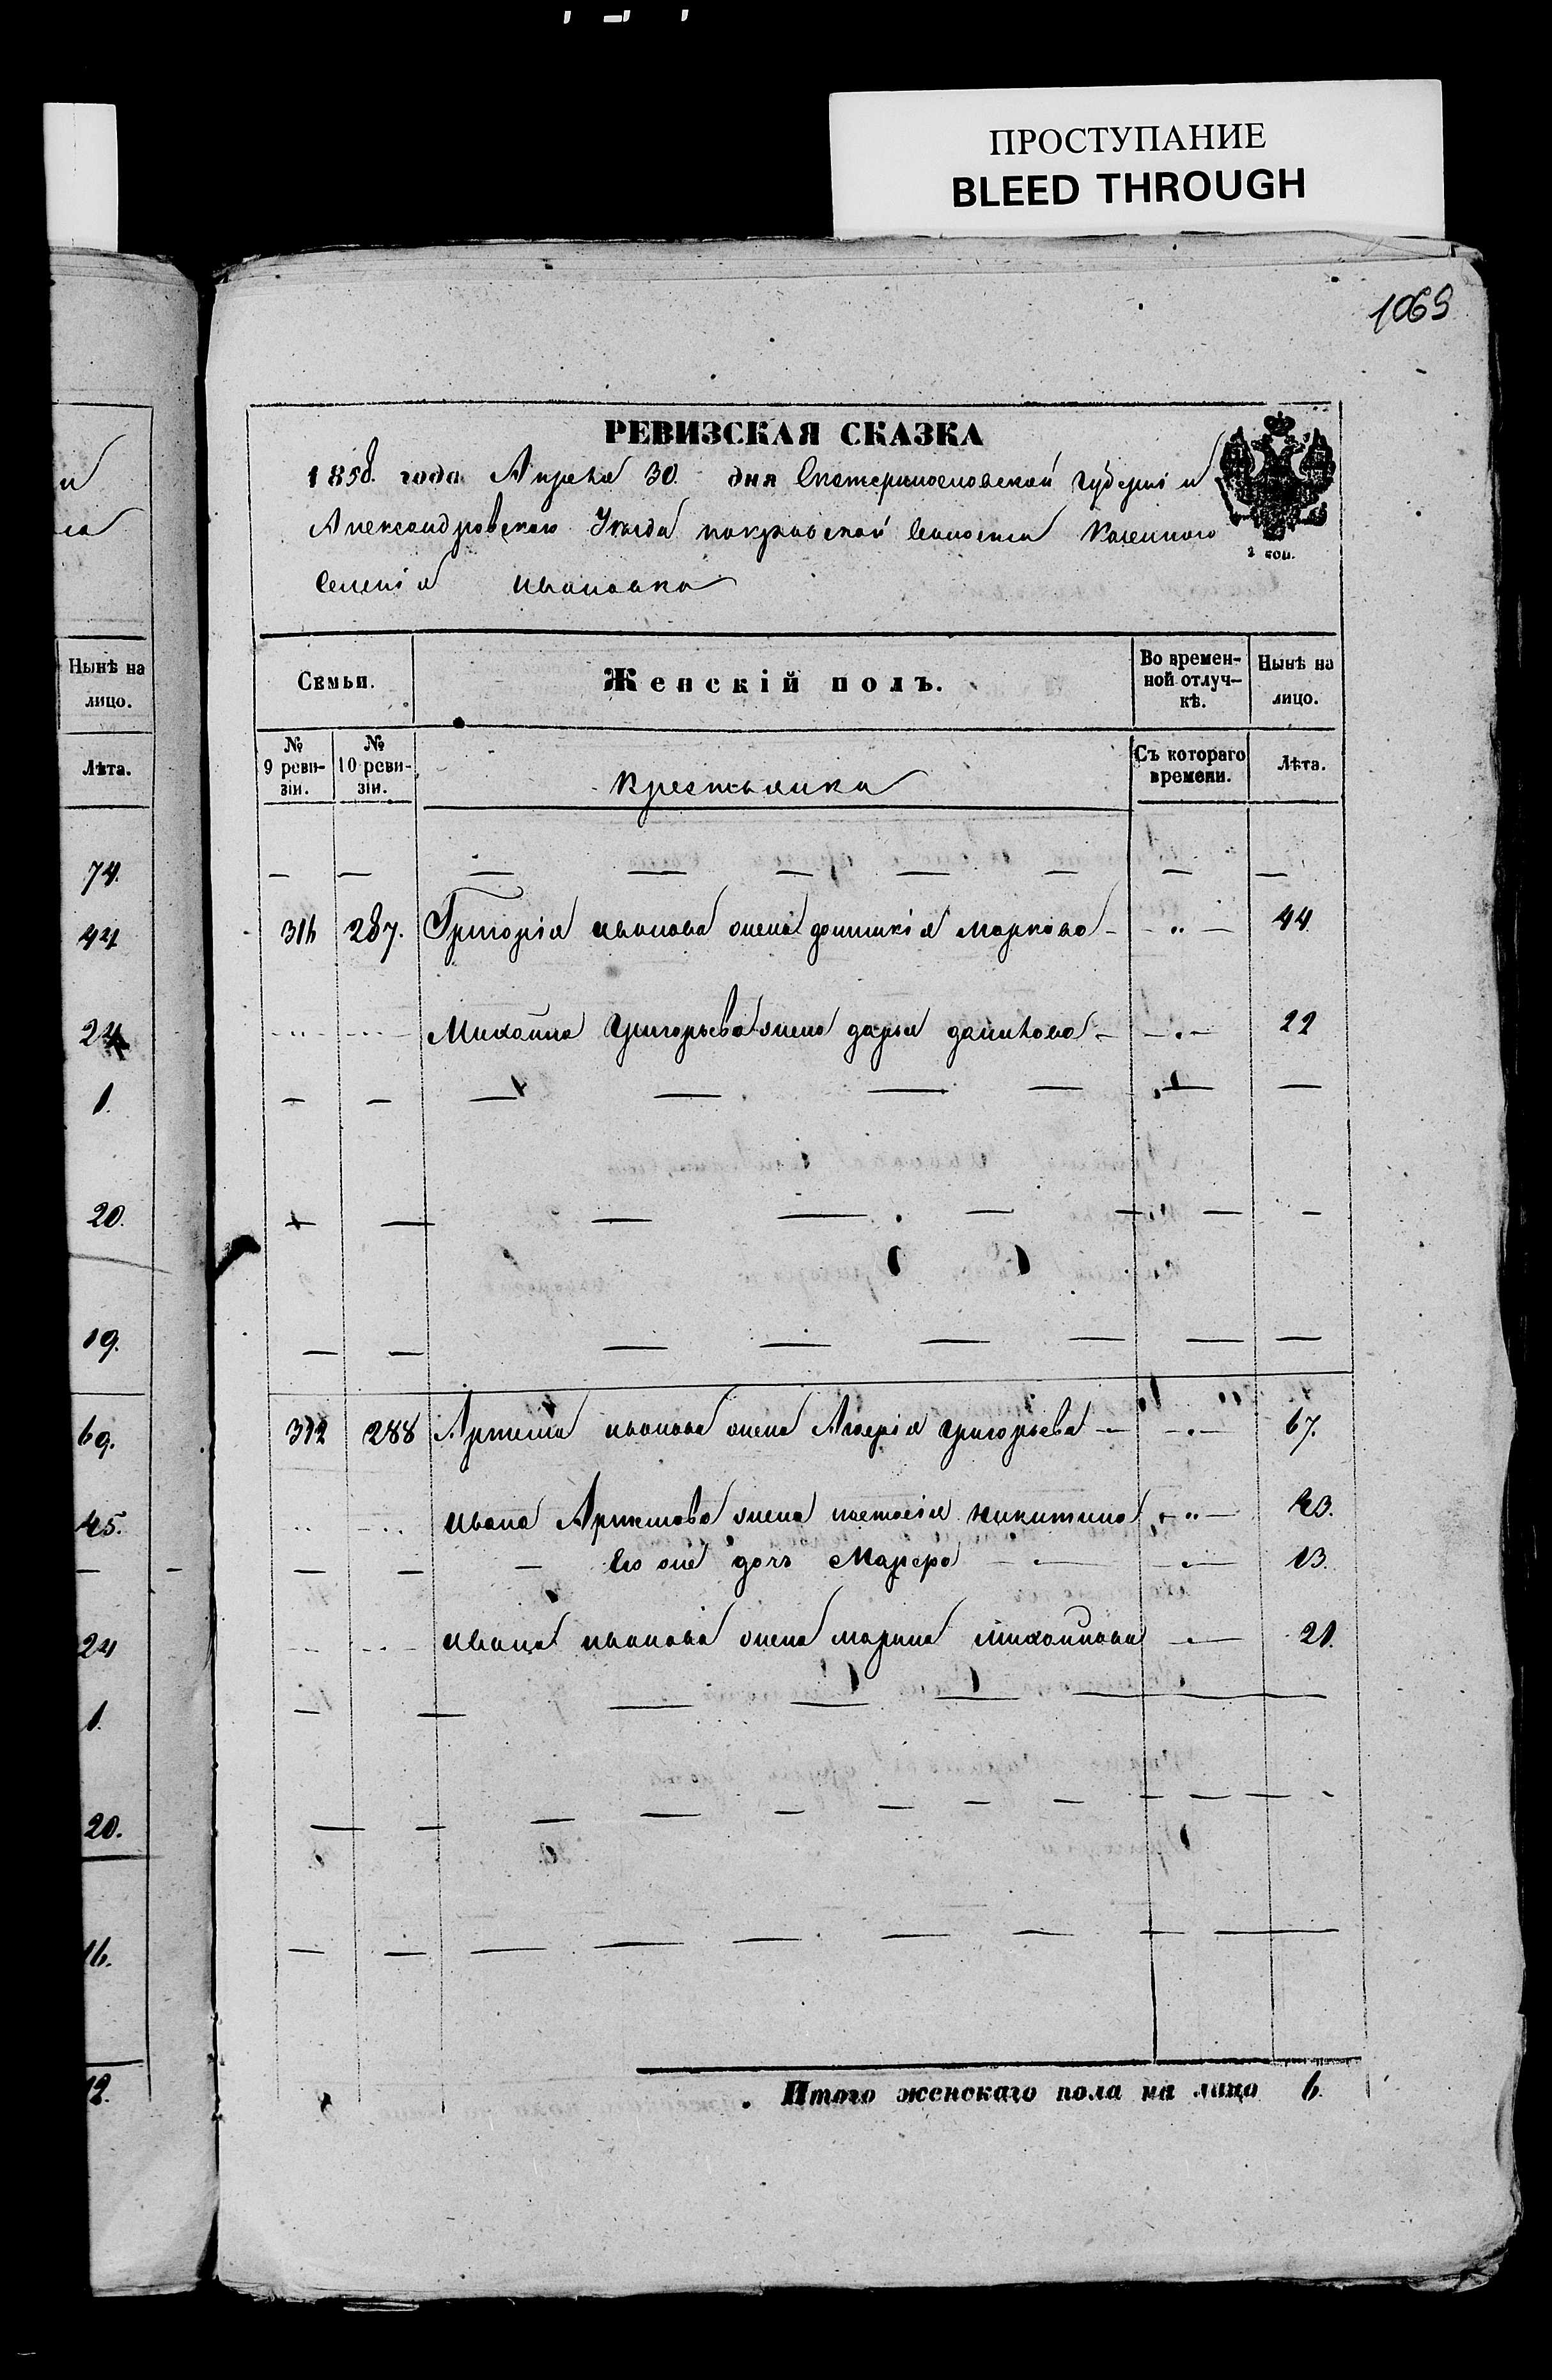 ПРОСТУПАНИЕ
BLEED THROUGH
1069
РЕВИЗСКАЯ СКАЗКА
1858. года Апреля 30. дня Екатеринославской губерніи
Александровскаго Уезда покровской Волости Казенного
2 коп.
Селенія ивановка
Нынѣ на лицо.
Лѣта.
74.
44
24
1.
20.
19.
69.
45.
24
1.
20.
16.
12.
Семьи.
Женскій полъ.
Во временной отлучкѣ.
Нынѣ на лицо.
№ 9 ревизіи.
№ 10 ревизіи.
Крестьянка
Съ котораго времени.
Лѣта.
311 287. Григорія иванова жена Маркова 44
Михайла Григорьева жена дарья данилова 22
312 288 Артема иванова жена Григорьева 67.
ивана Артемова жена настасія никитина 43.
Его дочь Марфа 13.
ивана иванова жена марина михайлова 21.
Итого женскаго пола на лицо 6.